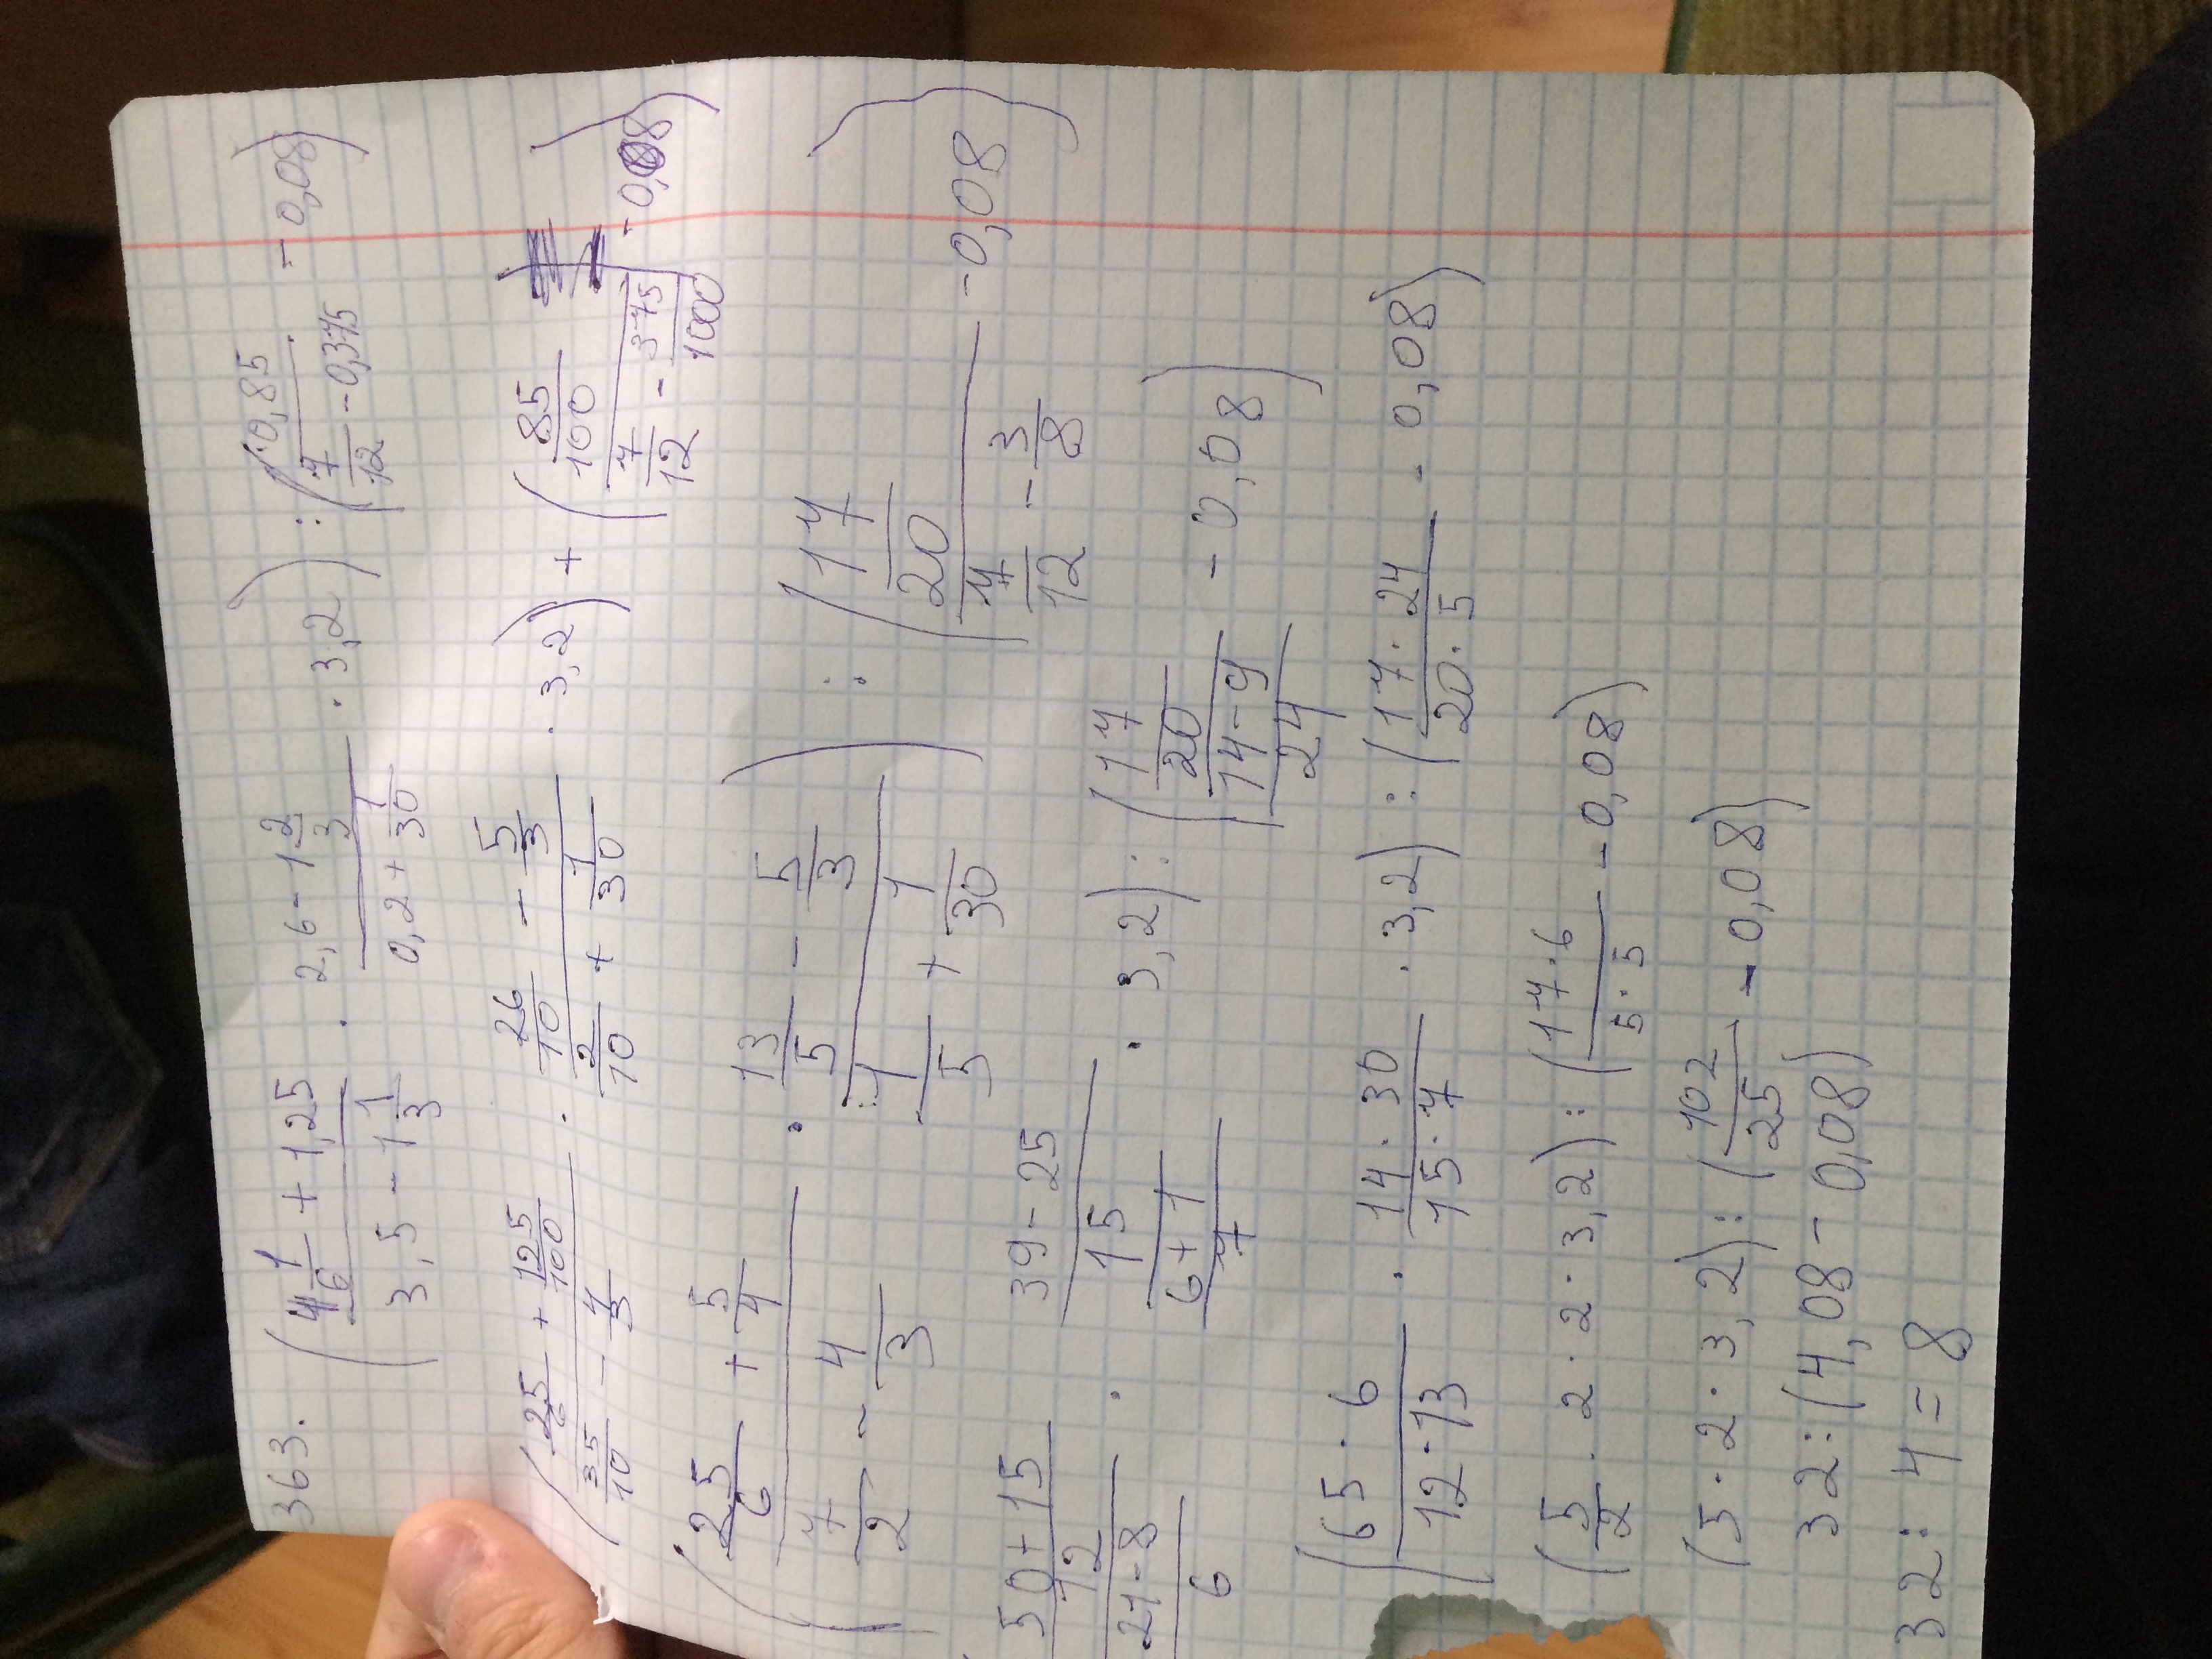 363. (4 1/6 + 1,25)/(3,5 - 1 1/3) · (2,6 - 1 2/3)/(0,2 + 1/30) · 3,2) : (0,85/(7/12 - 0,375) - 0,08)
((25/6 + 125/100)/(35/10 - 4/3) · (26/10 - 5/3)/(2/10 + 1/30) · 3,2) + ((85/100)/(7/12 - 375/1000) - 0,08)
((25/6 + 5/4)/(7/2 - 4/3) · (13/5 - 5/3)/(1/5 + 1/30)) : ((17/20)/(7/12 - 3/8) - 0,08)
((50+15)/12)/((21-8)/6) · ((39-25)/15)/((6+1)/7) · 3,2) : ((17/20)/((14-9)/24) - 0,08)
((65·6)/(12·13) · (14·30)/(15·7) · 3,2) : ((17·24)/(20·5) - 0,08)
(5/2 · 2 · 2 · 3,2) : ((17·6)/(5·5) - 0,08)
(5 · 2 · 3,2) : (102/25 - 0,08)
32 : (4,08 - 0,08)
32 : 4 = 8